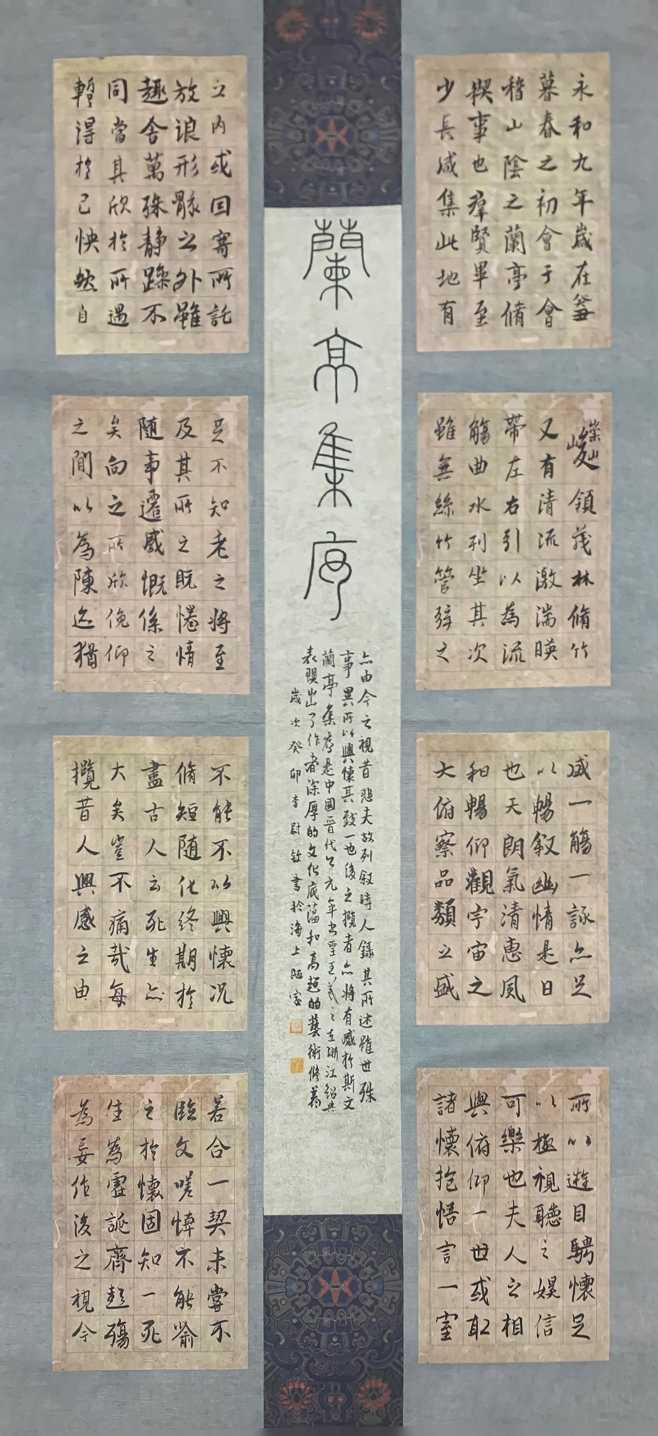 蘭亭集序
永和九年歲在癸丑
暮春之初會于會
稽山陰之蘭亭脩
稧事也群賢畢至
少長咸集此地有
崇山峻領茂林脩竹
又有清流激湍暎
帶左右引以為流
觴曲水列坐其次
雖無絲竹管弦之
盛一觴一詠亦足
以暢敘幽情是日
也天朗氣清惠風
和暢仰觀宇宙之
大俯察品類之盛
所以遊目騁懷足
以極視聽之娛信
可樂也夫人之相
與俯仰一世或取
諸懷抱悟言一室
之內或因寄所託
放浪形骸之外雖
趣舍萬殊靜躁不
同當其欣於所遇
暫得於己怏然自
足不知老之將至
及其所之既惓情
隨事遷感慨係之
矣向之所欣俛仰
之間以為陳迹猶
不能不以興懷況
脩短隨化終期於
盡古人云死生亦
大矣豈不痛哉每
攬昔人興感之由
若合一契未嘗不
臨文嗟悼不能喻
之於懷固知一死
生為虛誕齊彭殤
為妄作後之視今
亦由今之視昔悲夫故列敘時人錄其所述雖世殊
事異所以興懷其致一也後之攬者亦將有感於斯文
蘭亭集序是中國晉代公元年書聖王羲之在浙江紹興
表現出了作者深厚的文化底蘊和高超的藝術修養
歲次癸卯李書於海上陋室